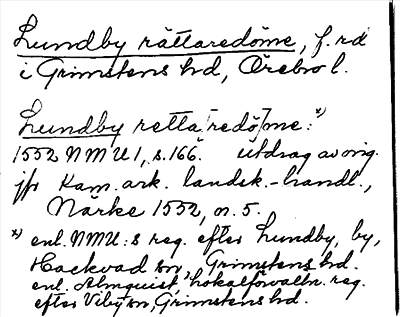 Lundby rättaredöme, f. rd
i Grimstens hd, Örebro l.
Lundby retta[redö]me: *)
1552 NMU 1, s. 166. utdrag av orig.
jfr Kam. ark. landsk.-handl.,
Närke 1552, n. 5.
*) enl. NMU:s reg. efter Lundby, by,
Hackvad sn, Grimstens hd.
enl. Almquist, Lokalförvaltn. reg.
efter Viby sn, Grimstens hd.